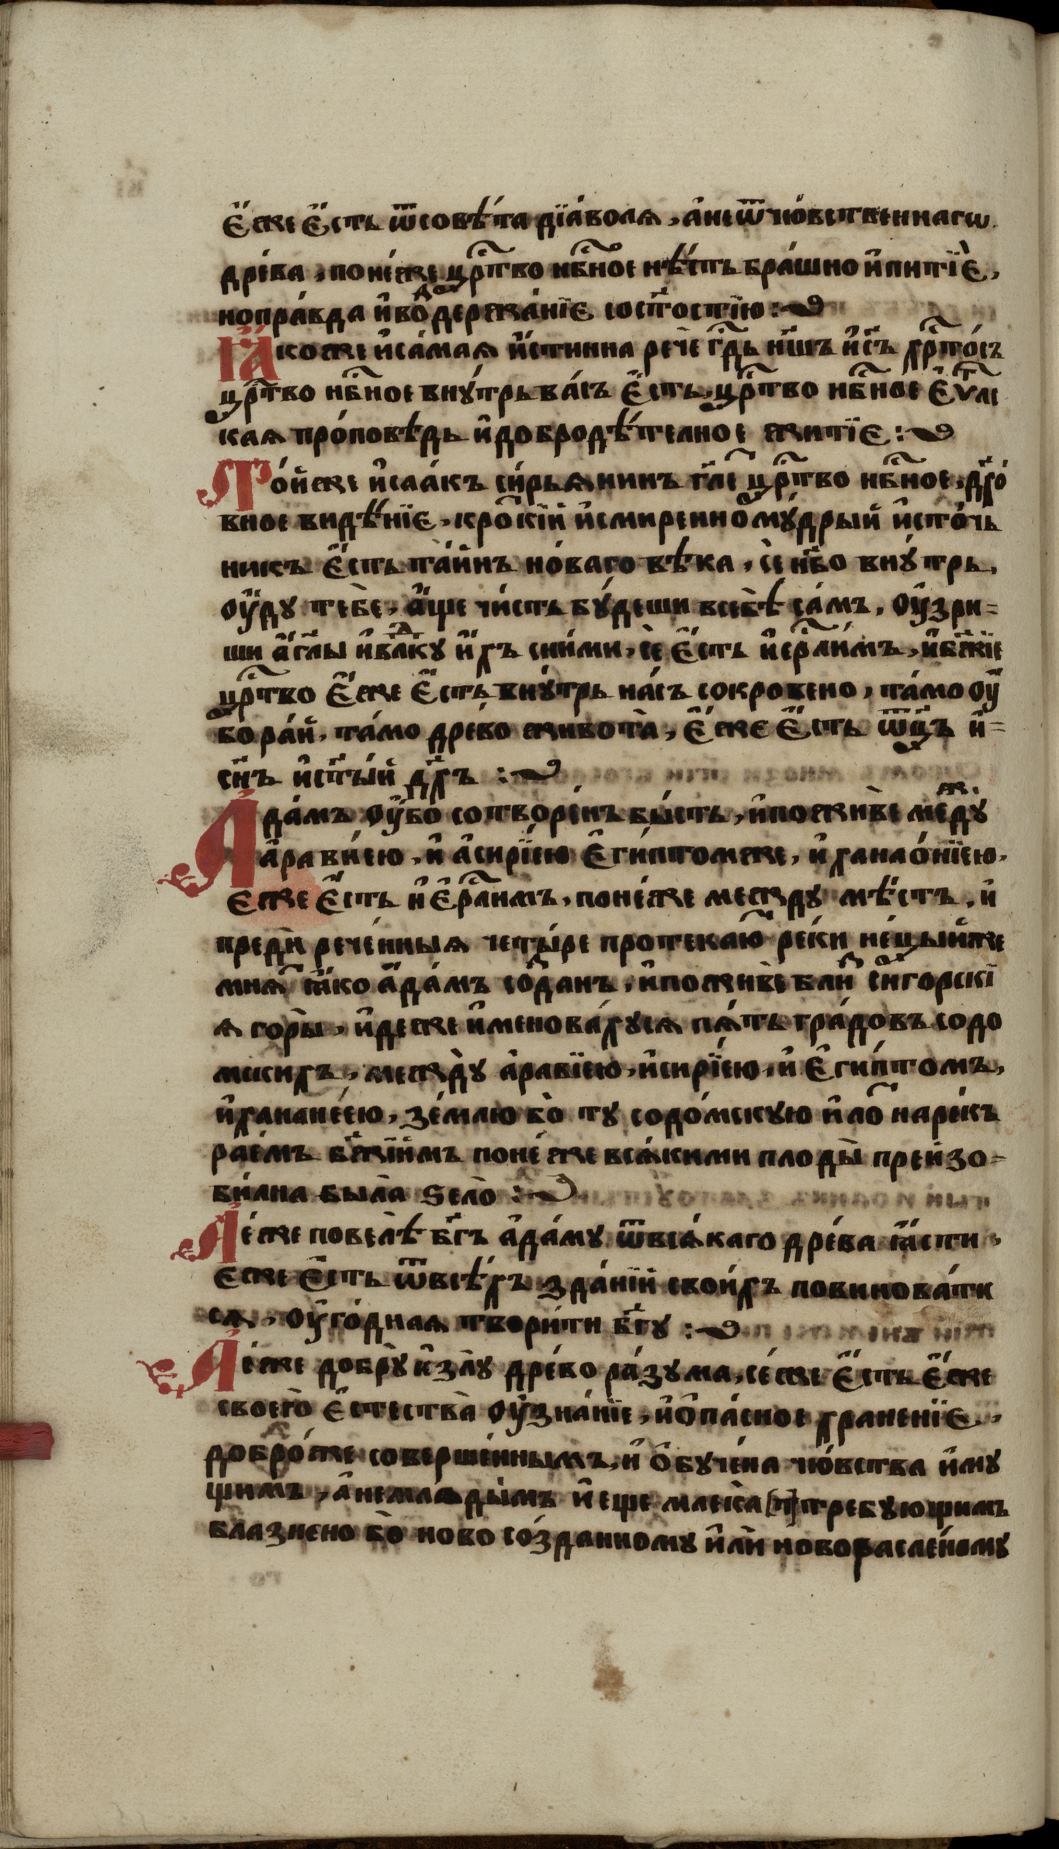 є҆́же є҆́сть ѿсовѣ́та дїа́волѧ, а҆неѿчю́вственнагѡ
дре́ва, поне́же црⷭ҇тво нбⷭ҇ное нѣ́сть бра́шно и҆питїѐ,
ноправда и҆воⷥдержа́нїє сост҃остїю :~
Ꙗ҆́коже и҆са́маѧ и҆́стинна речѐ гдⷭ҇ь н҃шъ і҆с҃ъ хрⷭ҇то́съ
црⷭ҇тво нбⷭ҇ное вну́трь ва́съ є҆́сть, црⷭ҇тво нбⷭ҇ное є҆ѵⷢ҇лс
каѧ про́повѣдь и҆добродѣ́телное житїѐ :~
То́йже и҆саа́къ си́рьѧнинъ гл҃е црⷭ҇тво нбⷭ҇ное, дх҃о́
вное видѣ́нїє, кроⷮкїй и҆смиренномꙋ́дрый и҆сто́чь
никъ є҆́сть та́инъ но́ваго вѣ́ка, сѐ нб҃о внꙋ́трь,
ѹ҆́дꙋ тебѐ, а҆́ще чи́стъ бꙋ́деши всебѣ̀ са́мъ, ѹ҆́зри-
ши а҆́гг҃лы и҆влⷣкꙋ и҆́хъ сни́ми, сѐ є҆́сть і҆ерⷭ҇ли́мъ, и҆бж҃їе
црⷭ҇тво є҆́же є҆́сть внꙋ́трь на́съ сокрове́но, та́мо ѹ҆
бо ра́й, та́мо дре́во живота̀, є҆́же є҆́сть ѿц҃ъ и҆-
сн҃ъ и҆ст҃ы́й дх҃ъ :~
А҆да́мъ ѹ҆́бо сотворе́нъ бы́сть, и҆поживѐ меⷤдꙋ̀
а҆рави́ею, и҆ а҆сирі́ею є҆гѵптомже, и҆ ханао́нїею,
є҆же є҆́сть и҆ є҆рⷭ҇лимъ, поне́же междꙋ мѣ́стъ, и҆
преди речє́нныѧ четы́ре протекаюⷮ реки не́цыиже
мнѧⷮ ꙗ҆́ко а҆да́мъ соⷥданъ, и҆поживѐ блиⷥ сигорскі
ѧ горы̀, и҆дѣже и҆менова́хꙋсѧ пѧ́ть гра́довъ содо
мскихъ, междꙋ̀ а҆равїею, и҆сирі́ею, и҆ є҆ги́птомъ,
и҆ханане́ею, зе́млю бо тꙋ содо́мскꙋю и҆лоⷮ наре́къ
рае́мъ бж҃їимъ поне́же всѧ́кими плоды̀ преизо-
би́лна была ѕело̀ :~
А҆ е́же повелѣ̀ бг҃ъ а҆да́мꙋ ѿвсѧ́каго дре́ва ꙗ҆́сти,
є҆же є҆́сть ѿвсѣ́хъ зда́нїй свои́хъ повинова́ти
сѧ, ѹ҆го́днаѧ твори́ти бг҃ꙋ :~
А҆ е́же добрꙋ̀ и҆злꙋ̀ дре́во ра́зꙋма, се́же є҆́сть є҆́же
своего̀ є҆стества̀ ѹ҆зна́нїе, и҆ѻ҆па́сное хране́нїє,
добро́же соверше́ннымъ, и҆ ѻ҆бꙋче́на чю́вства и҆мꙋ
щимъ, а҆немлады̀мъ и҆ еще млека̀ требꙋющимъ
блазнєно бо̀ ново со́зданномꙋ и҆лѝ новорасле́номꙋ